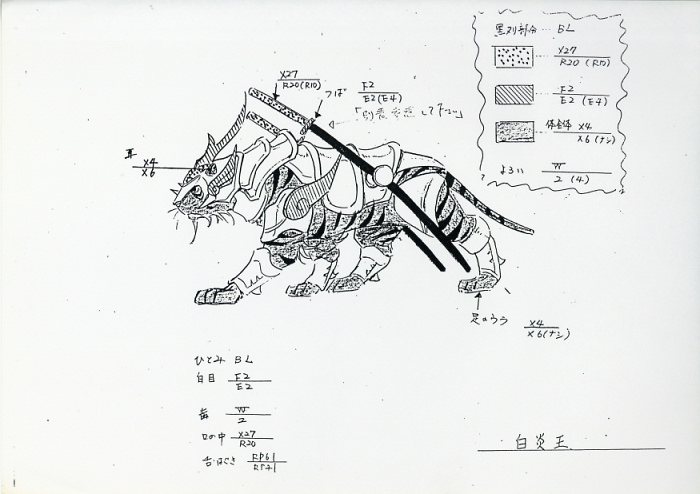 黒ヌリ部分 … BL
X27
R20 (R10)
F2
E2 (E4)
体全体 X4
X6 (ナシ)
よろい W
2 (4)
X27
R20(R10)
つば
F2
E2(E4)
「別表参照して下さい」
耳 X4
X6
足のウラ X4
X6(ナシ)
ひとみ BL
白目 F2
E2
歯 W
2
口の中 X27
R20
舌・はぐき RP61
RP41
白炎王